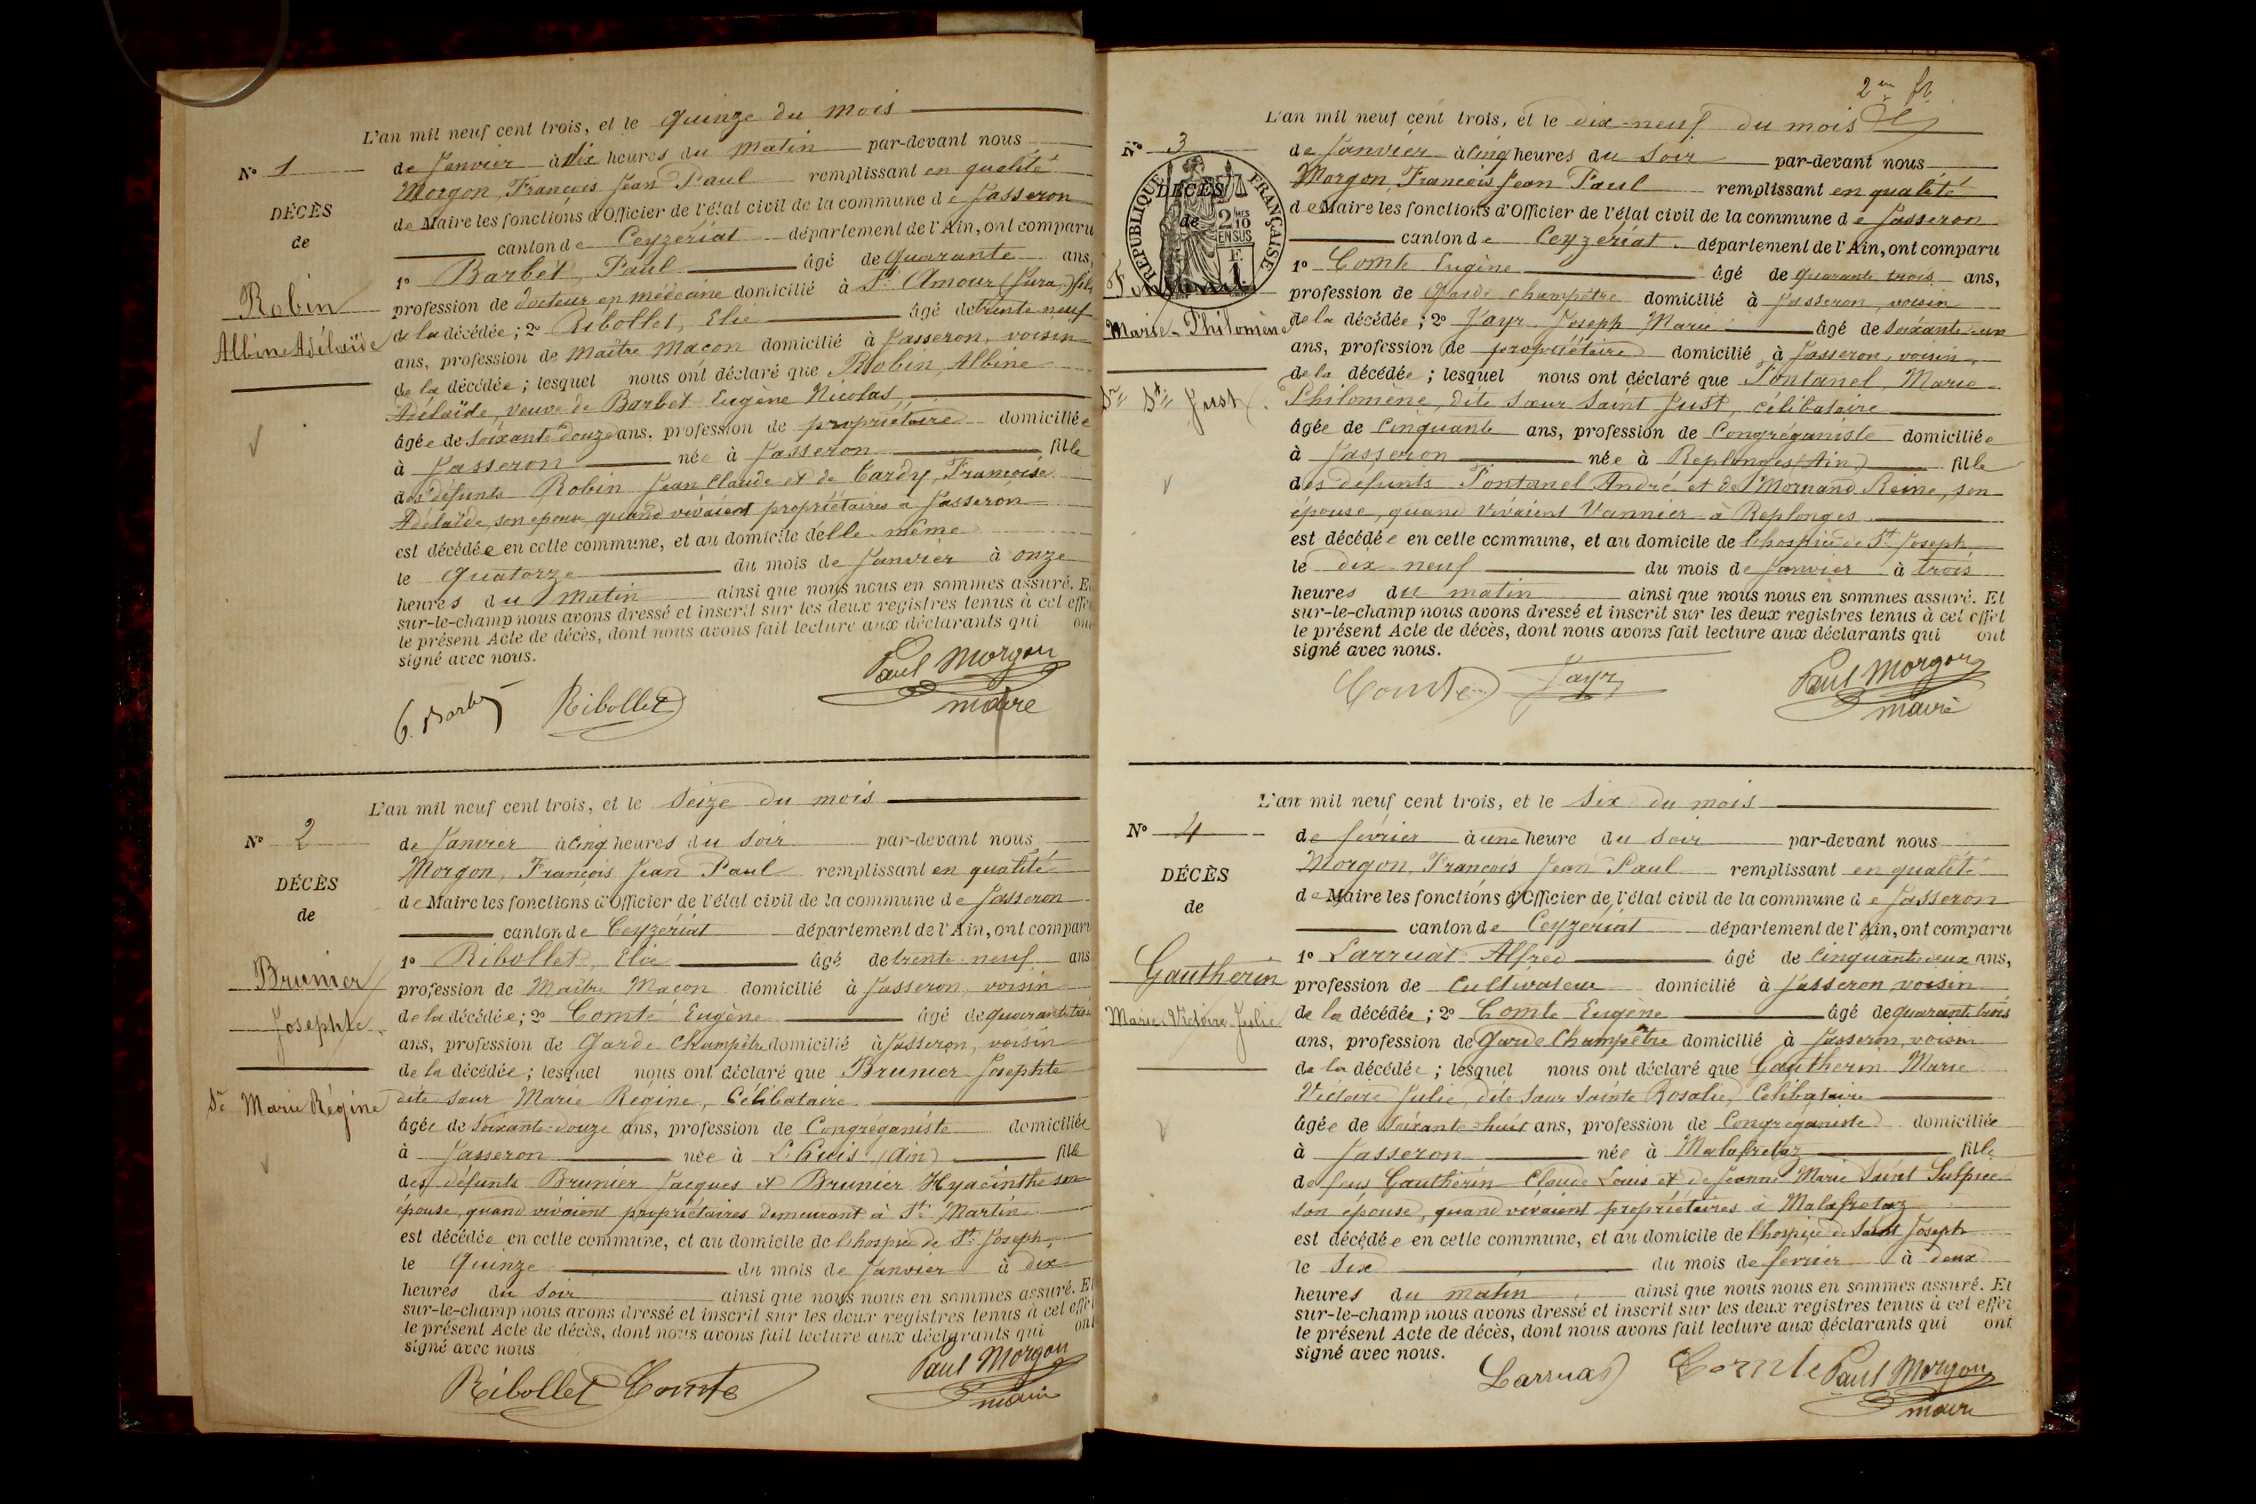 L'an mil neuf cent trois, et le quinze du mois
N° 1
de Janvier à dix heures du matin par-devant nous
Morgon, François Jean Paul remplissant en qualité
DÉCÈS
de Maire les fonctions d'Officier de l'état civil de la commune de Jasseron
de
canton de Ceyzériat département de l'Ain, ont comparu
1° Barbet, Paul âgé de quarante ans,
Robin
profession de docteur en médecine domicilié à St Amour (Jura) fils
Albine Adélaïde
de la décédée; 2° Ribollet, Elie âgé de trente neuf
ans, profession de Maître Maçon domicilié à Jasseron, voisin
de la décédée; lesquel nous ont déclaré que Robin, Albine
Adélaïde, veuve de Barbet Eugène Nicolas,
âgée de soixante douze ans, profession de propriétaire domiciliée
à Jasseron née à Jasseron fille
des défunts Robin Jean Claude et de Cardy, Françoise
Adélaïde, son épouse, quand vivaient propriétaires à Jasseron
est décédée en cette commune, et au domicile d'elle-même
le quatorze du mois de Janvier à onze
heures du matin ainsi que nous nous en sommes assuré. Et
sur-le-champ nous avons dressé et inscrit sur les deux registres tenus à cet effet
le présent Acte de décès, dont nous avons fait lecture aux déclarants qui ont
signé avec nous.
Paul Morgon
maire
Ribollet
L'an mil neuf cent trois, et le seize du mois
N° 2
de Janvier à cinq heures du soir par-devant nous
Morgon, François Jean Paul remplissant en qualité
DÉCÈS
de Maire les fonctions d'Officier de l'état civil de la commune de Jasseron
de
canton de Ceyzériat département de l'Ain, ont comparu
1° Ribollet, Elie âgé de trente-neuf ans
Brunier
profession de Maître Maçon domicilié à Jasseron, voisin
Josephte
de la décédée; 2° Comte Eugène âgé de quarante trois
ans, profession de Garde champêtre domicilié à Jasseron, voisin
de la décédée; lesquel nous ont déclaré que Brunier Josephte
Sr Marie Régine
dite sœur Marie Régine, Célibataire
âgée de soixante-douze ans, profession de Congréganiste domiciliée
à Jasseron née à L'huis (Ain) fille
des défunts Brunier Jacques et Brunier Hyacinthe son
épouse, quand vivaient propriétaires demeurant à St Martin
est décédée en cette commune, et au domicile de l'hospice de St Joseph,
le Quinze du mois de Janvier à dix
heures du soir ainsi que nous nous en sommes assuré. Et
sur-le-champ nous avons dressé et inscrit sur les deux registres tenus à cet effet
le présent Acte de décès, dont nous avons fait lecture aux déclarants qui ont
signé avec nous
Ribollet Comte Paul Morgon
maire
L'an mil neuf cent trois, et le dix-neuf du mois
N° 3
de Janvier à cinq heures du soir par-devant nous
Morgon, François Jean Paul remplissant en qualité
DÉCÈS
RÉPUBLIQUE FRANÇAISE
de Maire les fonctions d'Officier de l'état civil de la commune de Jasseron
de
canton de Ceyzériat département de l'Ain, ont comparu
1° Comte Eugène âgé de quarante trois ans,
profession de Garde champêtre domicilié à Jasseron, voisin
Marie-Philomène
de la décédée; 2° Jayr Joseph Marie âgé de soixante-un
ans, profession de propriétaire domicilié à Jasseron, voisin
de la décédée; lesquel nous ont déclaré que Fontanel, Marie
Sr St Just
Philomène, dite sœur Saint Just, célibataire
âgée de Cinquante ans, profession de Congréganiste domiciliée
à Jasseron née à Replonges (Ain) fille
des défunts Fontanel André et de Mornand Reine, son
épouse, quand vivaient Vannier à Replonges
est décédée en cette commune, et au domicile de l'hospice de St Joseph
le dix neuf du mois de Janvier à trois
heures du matin ainsi que nous nous en sommes assuré. Et
sur-le-champ nous avons dressé et inscrit sur les deux registres tenus à cet effet
le présent Acte de décès, dont nous avons fait lecture aux déclarants qui ont
signé avec nous.
Comte Jayr Paul Morgon
maire
L'an mil neuf cent trois, et le Six du mois
N° 4
de février à une heure du soir par-devant nous
Morgon, François Jean Paul remplissant en qualité
DÉCÈS
de Maire les fonctions d'Officier de l'état civil de la commune de Jasseron
de
canton de Ceyzériat département de l'Ain, ont comparu
1° Larruat Alfred âgé de Cinquante deux ans,
Gautherin
profession de Cultivateur domicilié à Jasseron, voisin
Marie Victoire Julie
de la décédée; 2° Comte Eugène âgé de quarante trois
ans, profession de Garde Champêtre domicilié à Jasseron, voisin
de la décédée; lesquel nous ont déclaré que Gautherin Marie
Victoire Julie, dite sœur Sainte Rosalie, Célibataire
âgée de soixante-huit ans, profession de Congréganiste domiciliée
à Jasseron née à Malafretaz fille
de feus Gautherin Claude Louis et de Jeanne Marie Saint Sulpice
son épouse, quand vivaient propriétaires à Malafretaz
est décédée en cette commune, et au domicile de l'hospice de Saint Joseph
le Six du mois de février à deux
heures du matin ainsi que nous nous en sommes assuré. Et
sur-le-champ nous avons dressé et inscrit sur les deux registres tenus à cet effet
le présent Acte de décès, dont nous avons fait lecture aux déclarants qui ont
signé avec nous.
Larruat Comte Paul Morgon
maire